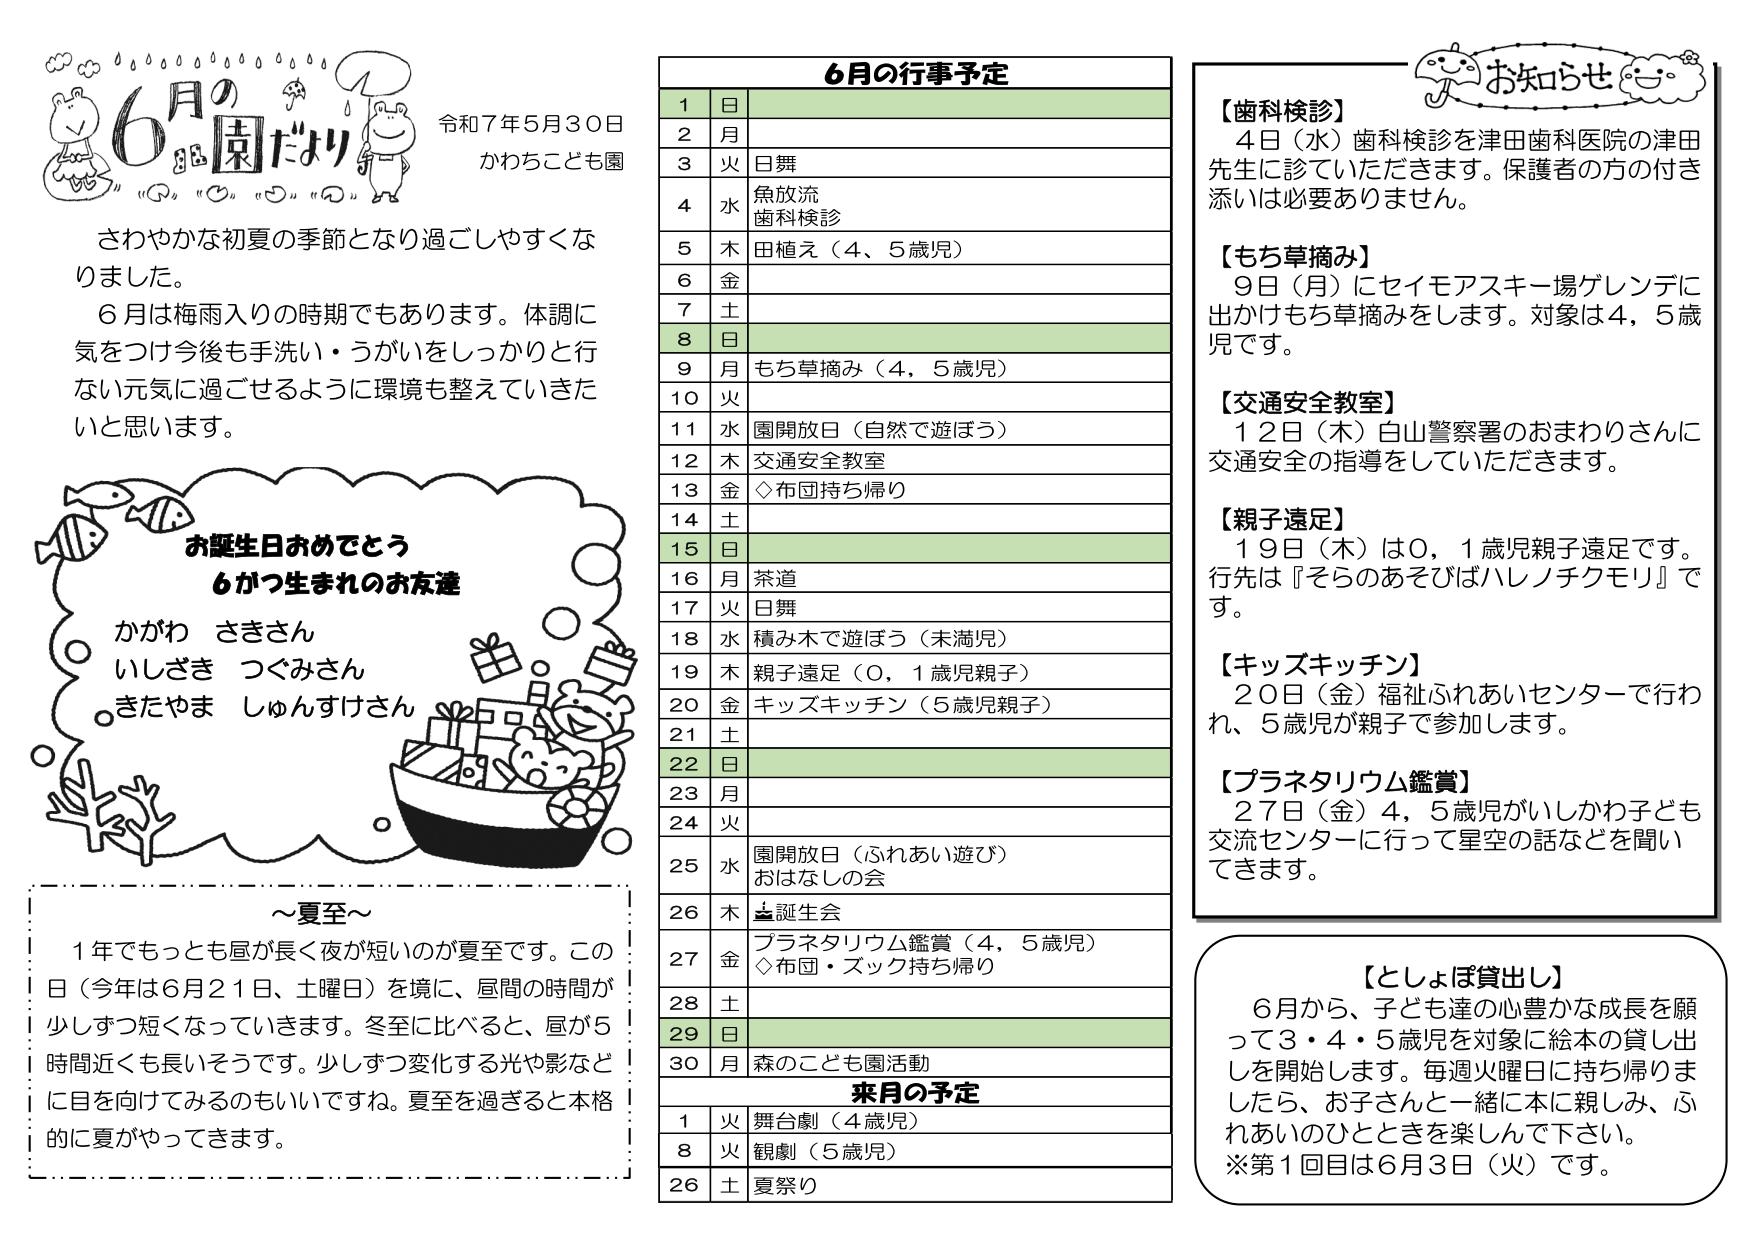 6月の
園だより
令和７年５月３０日
かわちこども園
さわやかな初夏の季節となり過ごしやすくな
りました。
６月は梅雨入りの時期でもあります。体調に
気をつけ今後も手洗い・うがいをしっかりと行
ない元気に過ごせるように環境も整えていきた
いと思います。
お誕生日おめでとう
6がつ生まれのお友達
かがわ　さきさん
いしざき　つぐみさん
きたやま　しゅんすけさん
～夏至～
１年でもっとも昼が長く夜が短いのが夏至です。この
日（今年は６月２１日、土曜日）を境に、昼間の時間が
少しずつ短くなっていきます。冬至に比べると、昼が５
時間近くも長いそうです。少しずつ変化する光や影など
に目を向けてみるのもいいですね。夏至を過ぎると本格
的に夏がやってきます。
6月の行事予定
1 日
2 月
3 火 日舞
4 水 魚放流
歯科検診
5 木 田植え（４、５歳児）
6 金
7 土
8 日
9 月 もち草摘み（４，５歳児）
10 火
11 水 園開放日（自然で遊ぼう）
12 木 交通安全教室
13 金 ◇布団持ち帰り
14 土
15 日
16 月 茶道
17 火 日舞
18 水 積み木で遊ぼう（未満児）
19 木 親子遠足（０，１歳児親子）
20 金 キッズキッチン（５歳児親子）
21 土
22 日
23 月
24 火
25 水 園開放日（ふれあい遊び）
おはなしの会
26 木 🎂誕生会
27 金 プラネタリウム鑑賞（４，５歳児）
◇布団・ズック持ち帰り
28 土
29 日
30 月 森のこども園活動
来月の予定
1 火 舞台劇（４歳児）
8 火 観劇（５歳児）
26 土 夏祭り
お知らせ
【歯科検診】
４日（水）歯科検診を津田歯科医院の津田
先生に診ていただきます。保護者の方の付き
添いは必要ありません。
【もち草摘み】
９日（月）にセイモアスキー場ゲレンデに
出かけもち草摘みをします。対象は４，５歳
児です。
【交通安全教室】
１２日（木）白山警察署のおまわりさんに
交通安全の指導をしていただきます。
【親子遠足】
１９日（木）は０，１歳児親子遠足です。
行先は『そらのあそびばハレノチクモリ』で
す。
【キッズキッチン】
２０日（金）福祉ふれあいセンターで行わ
れ、５歳児が親子で参加します。
【プラネタリウム鑑賞】
２７日（金）４，５歳児がいしかわ子ども
交流センターに行って星空の話などを聞い
てきます。
【としょぽ貸出し】
６月から、子ども達の心豊かな成長を願
って３・４・５歳児を対象に絵本の貸し出
しを開始します。毎週火曜日に持ち帰りま
したら、お子さんと一緒に本に親しみ、ふ
れあいのひとときを楽しんで下さい。
※第１回目は６月３日（火）です。